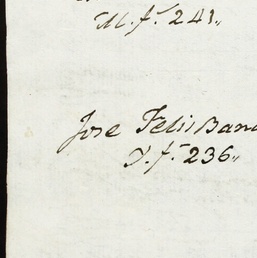 M. f. 241,,
Jose Felis Ban
T. f. 236,,